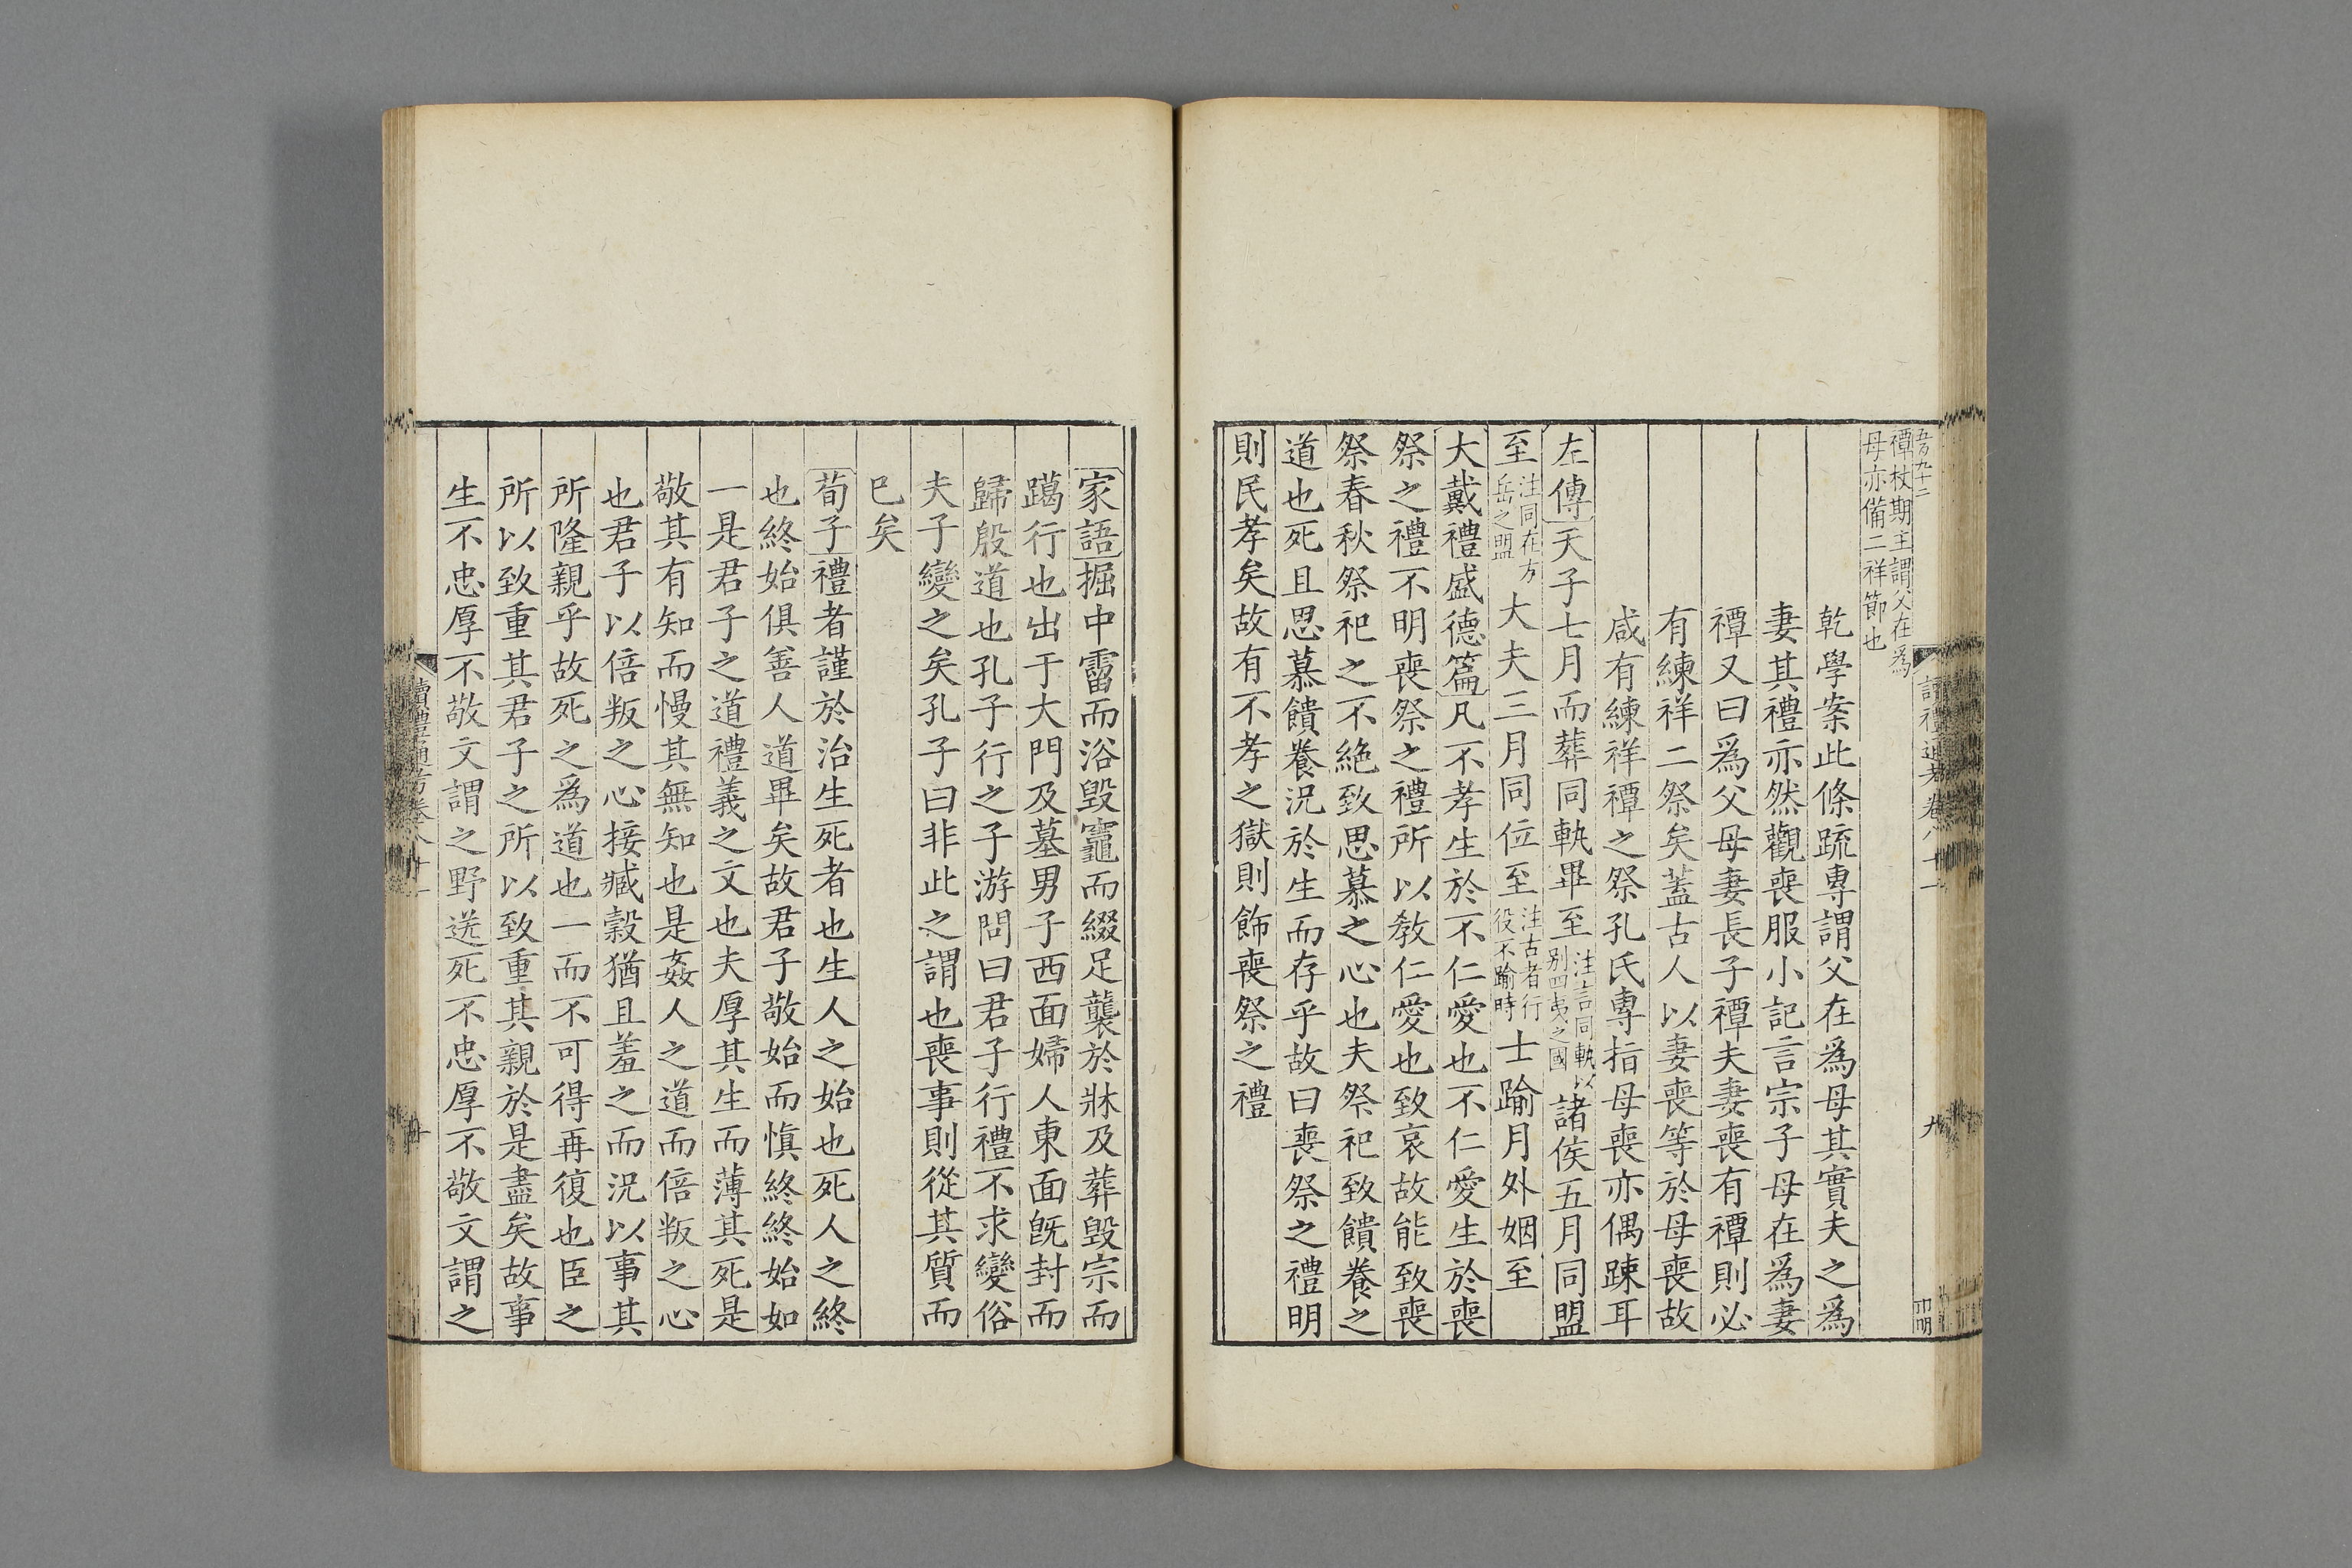 五百九十二
讀禮通考卷八十一
九
禫杖期主謂父在爲
母亦備二祥節也
乾學案此條疏專謂父在爲母其實夫之爲
妻其禮亦然觀喪服小記言宗子母在爲妻
禫又曰爲父母妻長子禫夫妻喪有禫則必
有練祥二祭矣蓋古人以妻喪等於母喪故
咸有練祥禫之祭孔氏專指母喪亦偶踈耳
左傳天子七月而葬同軌畢至注言同軌以别四夷之國諸侯五月同盟
至注同在方岳之盟大夫三月同位至注古者行役不踰時士踰月外姻至
大戴禮盛德篇凡不孝生於不仁愛也不仁愛生於喪
祭之禮不明喪祭之禮所以敎仁愛也致哀故能致喪
祭春秋祭祀之不絶致思慕之心也夫祭祀致饋養之
道也死且思慕饋養況於生而存乎故曰喪祭之禮明
則民孝矣故有不孝之獄則飾喪祭之禮
家語掘中霤而浴毀竈而綴足襲於牀及葬毀宗而
躐行也出于大門及墓男子西面婦人東面旣封而
歸殷道也孔子行之子游問曰君子行禮不求變俗
夫子變之矣孔子曰非此之謂也喪事則從其質而
已矣
荀子禮者謹於治生死者也生人之始也死人之終
也終始俱善人道畢矣故君子敬始而愼終終始如
一是君子之道禮義之文也夫厚其生而薄其死是
敬其有知而慢其無知也是姦人之道而倍叛之心
也君子以倍叛之心接臧穀猶且羞之而況以事其
所隆親乎故死之爲道也一而不可得再復也臣之
所以致重其君子之所以致重其親於是盡矣故事
生不忠厚不敬文謂之野送死不忠厚不敬文謂之
讀禮通考卷八十一